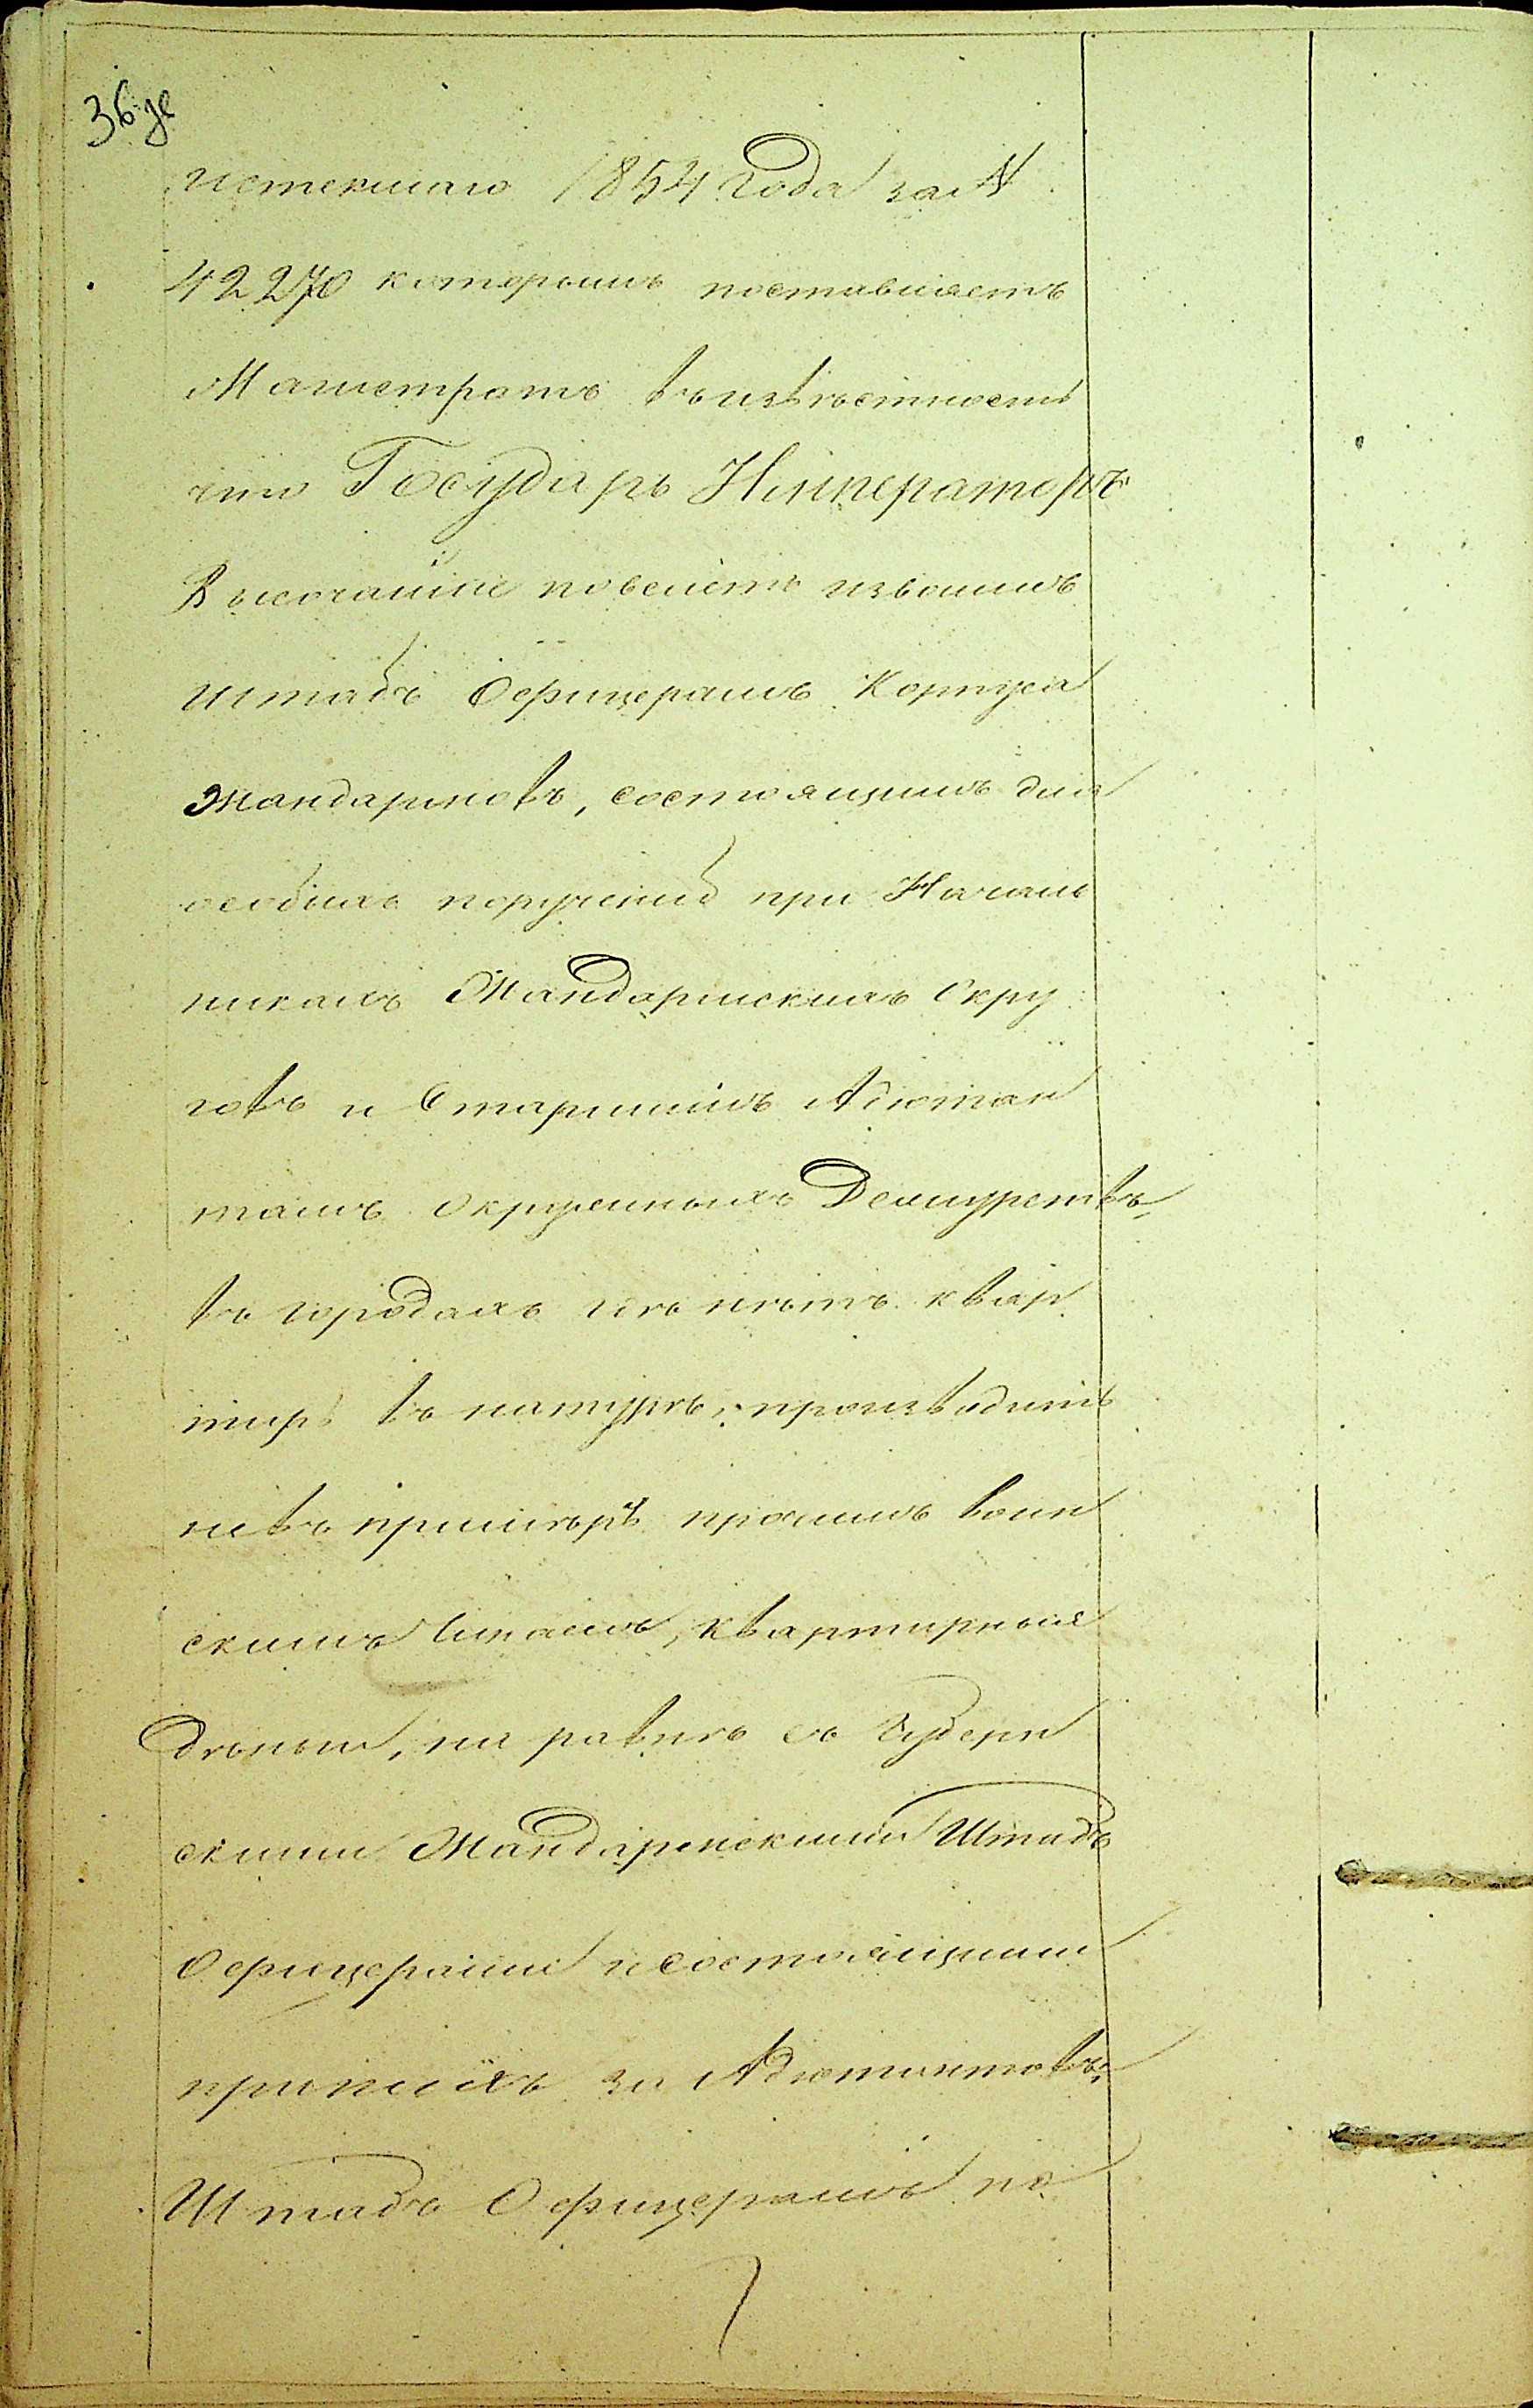 36 ж
истекшаго 1854 года за №
42270 которымъ поставляетъ
Магистратъ въ извѣстность
что Государь Императоръ
Высочайше повелѣть изволилъ
Штабъ Офицерамъ Корпуса
Жандармовъ, состоящимъ для
особыхъ порученій при Началь
никахъ Жандармскихъ Окру
говъ и Старшимъ Адютан
тамъ окружныхъ Дежурствъ,
въ городахъ гдѣ нѣтъ квар
тиръ въ натурѣ, производить
не въ примѣръ прочимъ воин
скимъ Чинамъ, квартирныя
деньги, на равнѣ съ Губерн
скими Жандармскими Штабъ
Офицерами и состоящими
при нихъ за Адютантовъ,
Штабъ Офицерамъ по